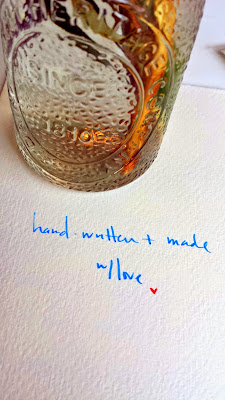 SINCE
hand-written + made
w/love